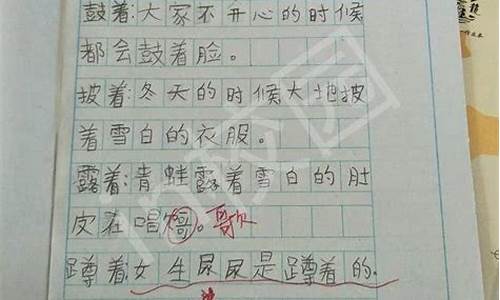 鼓着:大家不开心的时候
都会鼓着脸。
披着:冬天的时候大地披
着雪白的衣服。
露着:青蛙露着雪白的肚
皮在唱。歌
蹲着:女生尿尿是蹲着的.